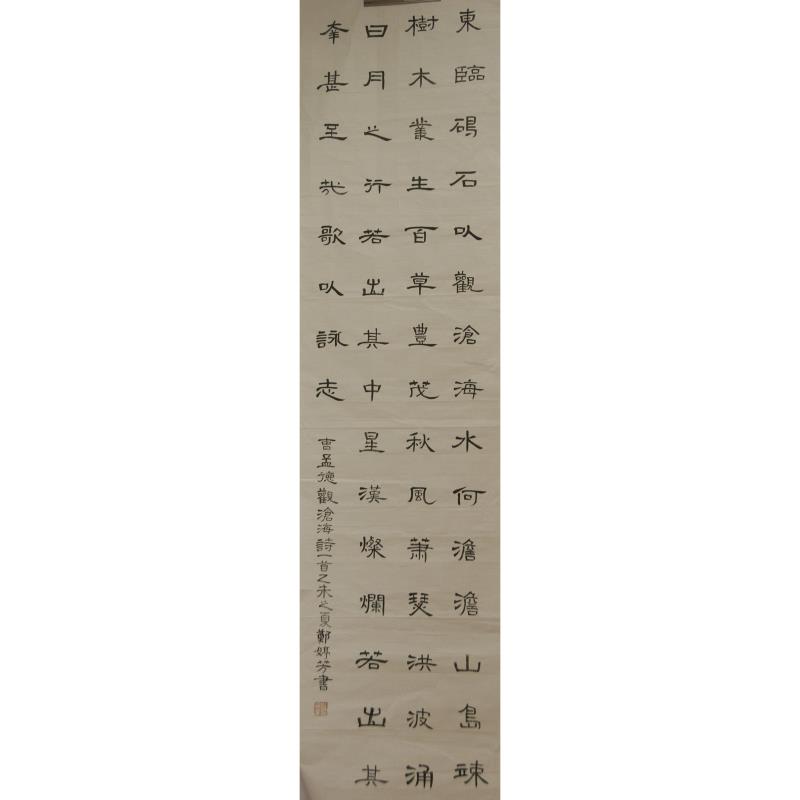 東臨碣石以觀滄海水何澹澹山島竦
樹木叢生百草豊茂秋風蕭瑟洪波涌
日月之行若出其中星漢燦爛若出其
幸甚至哉歌以詠志
曹孟德觀滄海詩一首乙未之夏鄭芳書